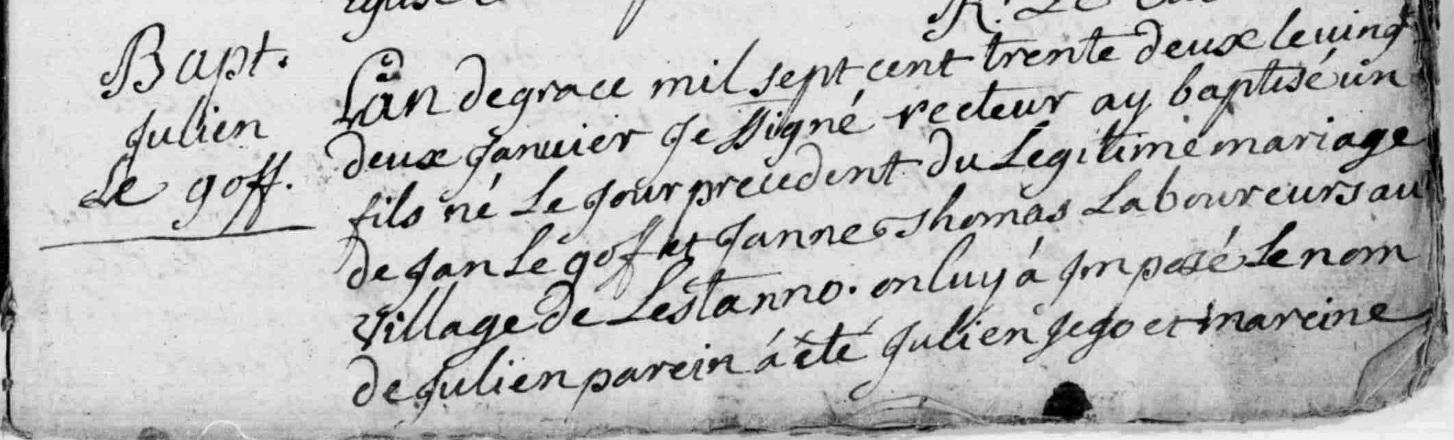 R. Le
Bapt.
Julien
Le goff.
L'an de grace mil sept cent trente deux le ving
deux Janvier Je ssigné recteur ay baptisé un
fils né Le Jour precedent du Legitime mariage
de Jan Le goff et Janne Thomas Laboureurs au
village de Lestanno. on luy á Jmposé Le nom
de Julien parein á été Julien Jego et mareine